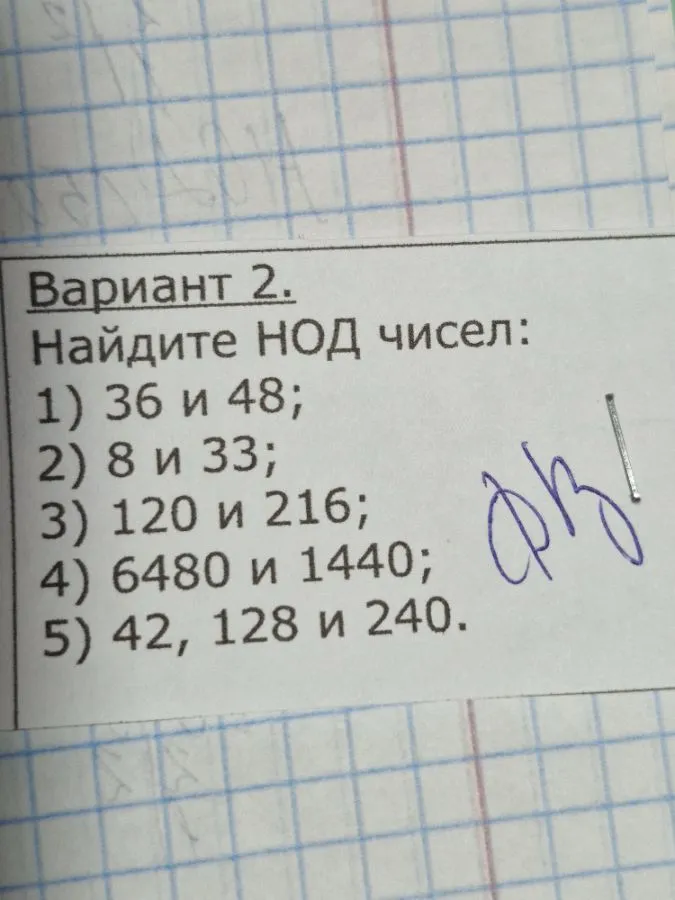 Вариант 2.
Найдите НОД чисел:
1) 36 и 48;
2) 8 и 33;
3) 120 и 216;
4) 6480 и 1440;
5) 42, 128 и 240.